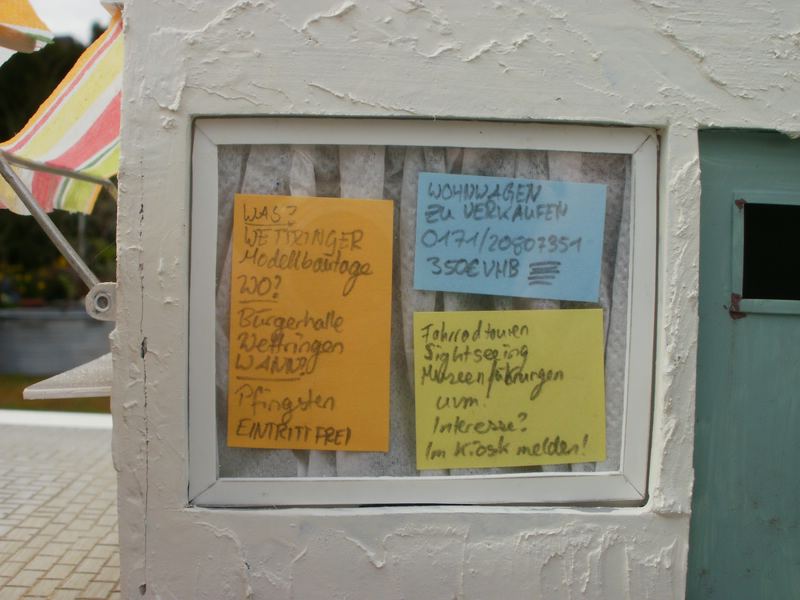 WAS?
WETTRINGER
Modellbautage
WO?
Bürgerhalle
Wettringen
WANN?
Pfingsten
EINTRITT FREI
WOHNWAGEN
ZU VERKAUFEN
0171/20807351
350€ VHB
Fahrradtouren
Sightseeing
Museenführungen
uvm.
Interesse?
Im Kiosk melden!